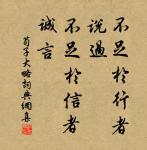 不足於行者
說過
不足於信者
誠言
荀子大略詞典網集